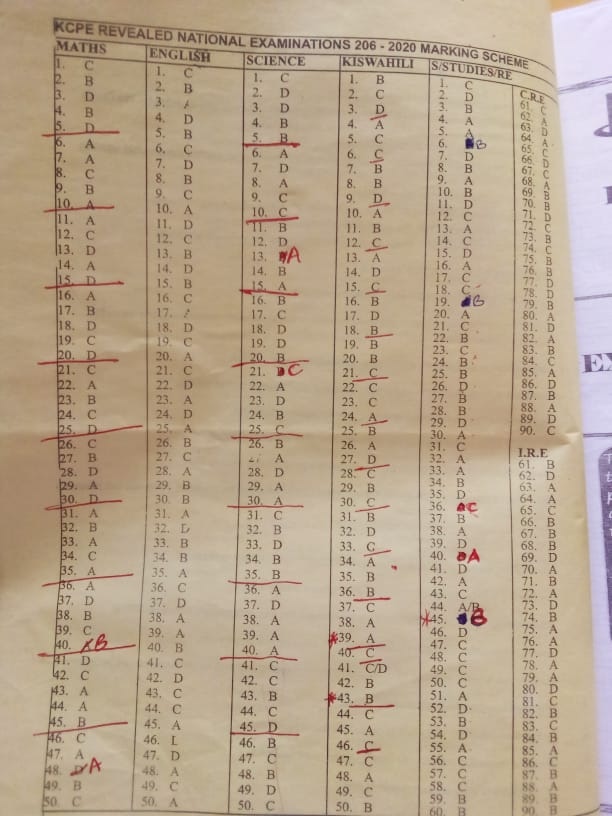 KCPE REVEALED NATIONAL EXAMINATIONS 206 - 2020 MARKING SCHEME
MATHS
1. C
2. B
3. D
4. B
5. D
6. A
7. A
8. C
9. B
10. A
11. A
12. C
13. D
14. A
15. D
16. A
17. B
18. D
19. C
20. D
21. C
22. A
23. B
24. C
25. D
26. C
27. B
28. D
29. A
30. D
31. A
32. B
33. A
34. C
35. A
36. A
37. D
38. B
39. C
40. B
41. D
42. C
43. A
44. A
45. B
46. C
47. A
48. A
49. B
50. C
ENGLISH
1. C
2. B
3. A
4. D
5. B
6. C
7. D
8. B
9. C
10. A
11. D
12. C
13. B
14. D
15. B
16. C
17.
18. D
19. C
20. A
21. C
22. D
23. A
24. D
25. A
26. B
27. C
28. A
29. B
30. B
31. A
32. D
33. B
34. B
35. A
36. C
37. D
38. A
39. A
40. B
41. C
42. D
43. C
44. C
45. A
46. L
47. D
48. A
49. C
50. A
SCIENCE
1. C
2. D
3. D
4. B
5. B
6. A
7. D
8. A
9. C
10. C
11. B
12. D
13. A
14. B
15. A
16. B
17. C
18. D
19. D
20. B
21. C
22. A
23. D
24. B
25. C
26. B
A
28. D
29. A
30. A
31. C
32. B
33. D
34. B
35. B
36. A
37. D
38. A
39. A
40. A
41. C
42. C
43. B
44. C
45. D
46. B
47. C
48. B
49. D
50. C
KISWAHILI
1. B
2. C
3. D
4. A
5. C
6. C
7. B
8. B
9. D
10. A
11. B
12. C
13. A
14. D
15. C
16. B
17. D
18. B
19. B
20. B
21. C
22. C
23. C
24. A
25. B
26. A
27. D
28. C
29. B
30. C
31. B
32. D
33. G
34. A
35. B
36. B
37. C
38. A
*39. A
40. C
41. C/D
42. B
*43. B
44. C
45. A
46. C
47. C
48. A
49. C
50. B
S/STUDIES/RE
1. C
2. D
3. B
4. A
5. A
6. B
7. D
8. B
9. A
10. B
11. D
12. C
13. A
14. C
15. D
16. A
17. C
18. C
19. B
20. A
21. C
22. B
23. C
24. B
25. B
26. D
27. B
28. B
29. D
30. A
31. C
32. A
33. A
34. B
35. D
36. C
37. B
38. A
39. D
40. A
41. D
42. A
43. C
44. A/B
*45. B
46. D
47. C
48. C
49. C
50. C
51. A
52. D
53. B
54. D
55. A
56. C
57. C
58. C
59. B
60. B
C.R.E
61. C
62. A
63. D
64. A
65. C
66. D
67. C
68. A
69. B
70. B
71. D
72. C
73. B
74. C
75. B
76. B
77. D
78. D
79. B
80. A
81. D
82. A
83. B
84. C
85. A
86. D
87. B
88. A
89. D
90. C
I.R.E
61. B
62. D
63. A
64. A
65. C
66. B
67. B
68. B
69. D
70. A
71. B
72. A
73. D
74. B
75. A
76. A
77. D
78. A
79. A
80. D
81. C
82. B
83. C
84. B
85. A
86. C
87. B
88. A
89. B
90. B